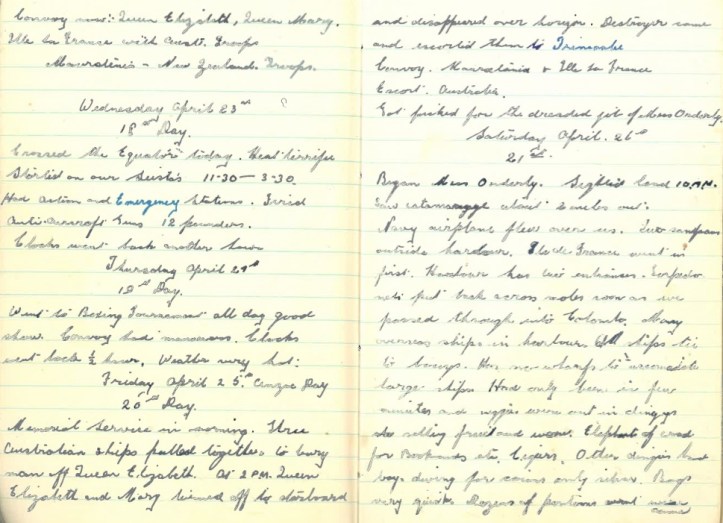 Convoy now: Queen Elizabeth, Queen Mary.
Ille de France with Aust. Troops
Mauretania - New Zealand Troops.
Wednesday April 23rd
18th Day.
Crossed the Equator today. Heat terrific
Started on our Siestas 11-30 - 3-30.
Had Action and Emergency Stations. Fired
Anti-Aircraft Guns 12 pounders.
Clocks went back another hour
Thursday April 24th
19th Day.
Went to Boxing Tournament all day good
show. Convoy had manoevers. Clocks
went back ½ hour. Weather very hot:
Friday April 25th. Anzac Day
20th Day.
Memorial Service in morning. Three
Australian ships pulled together to bury
man off Queen Elizabeth. At 2 PM. Queen
Elizabeth and Mary turned off to starboard
and disappeared over horizon. Destroyer came
and escorted them to Trincomalee
Convoy. Mauretania & Ille de France
Escort. Australia.
Got picked for the dreaded job of Mess Orderly.
Saturday April. 26th
21st.
Began Mess Orderly. Sighted land 10 AM.
Saw about 2 miles out.
Navy airplane flew over us. Two sampans
outside harbour. Ille de France went in
first. Harbour has two entrances. Torpedo
nets put back across moles soon as we
passed through into Colombo. Many
overseas ships in harbour. All ships tie
to bouys. Has no wharfs to accomodate
large ships. Had only been in few
minutes and were out in
selling fruit and wares. Elephants of wood
for Bookends etc. Cigars. Other dingies had
boys diving for coins only silver. Boys
very quick. Dozens of